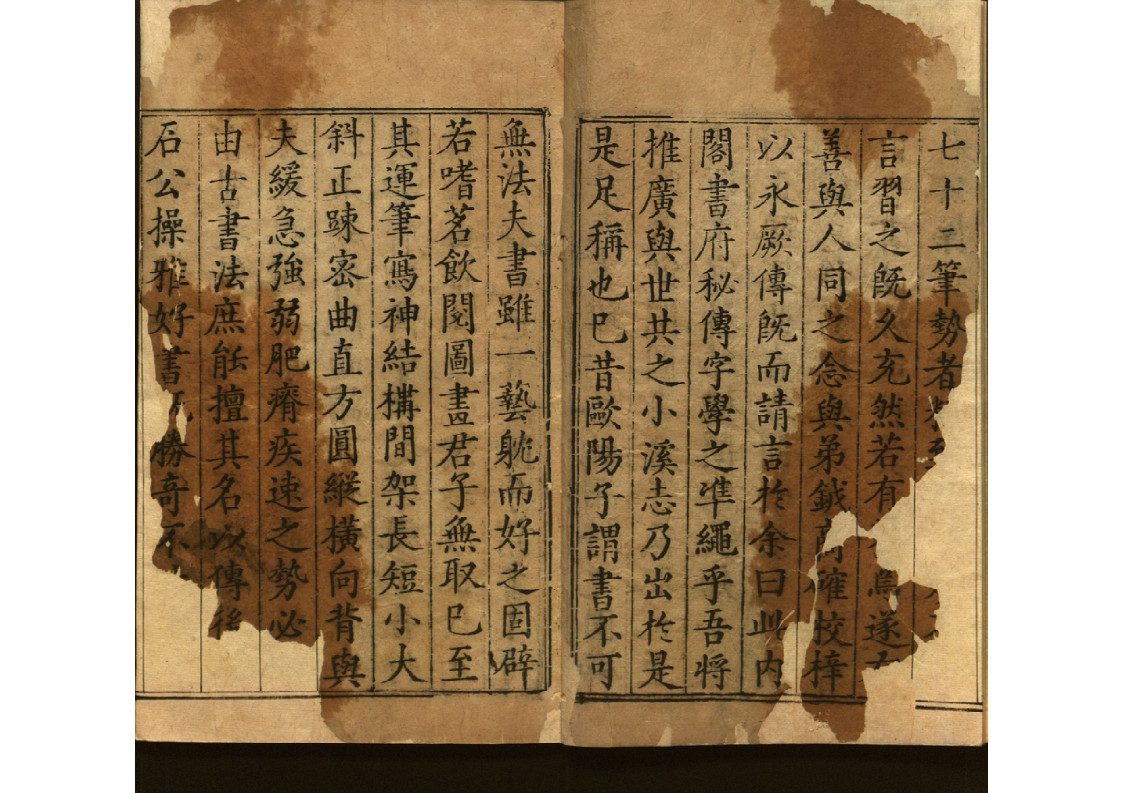 七十二筆勢者
言習之旣久充然若有焉遂
善與人同之念與弟鉞商確校梓
以永厥傳旣而請言於余曰此内
閣書府秘傳字學之凖繩乎吾將
推廣與世共之小溪志乃出於是
是足稱也巳昔歐陽子謂書不可
無法夫書雖一藝躭而好之固癖
若嗜茗飲閱圖畫君子無取巳至
其運筆寫神結構間架長短小大
斜正踈宻曲直方圓縱横向背與
夫緩急強弱肥瘠疾速之勢必
由古書法庶能擅其名以傳後
石公操雅好書勝奇不